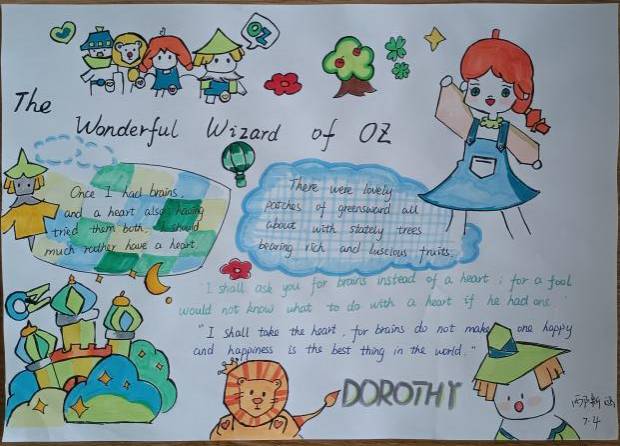 OZ
The
Wonderful Wizard of OZ
Once I had brains,
and a heart also, having
tried them both, I should
much rather have a heart.
There were lovely
patches of greensward all
about with stately trees
bearing rich and luscious fruits.
"I shall ask you for brains instead of a heart; for a fool
would not know what to do with a heart if he had one."
"I shall take the heart, for brains do not make one happy
and happiness is the best thing in the world."
OZ
DOROTHY
7.4